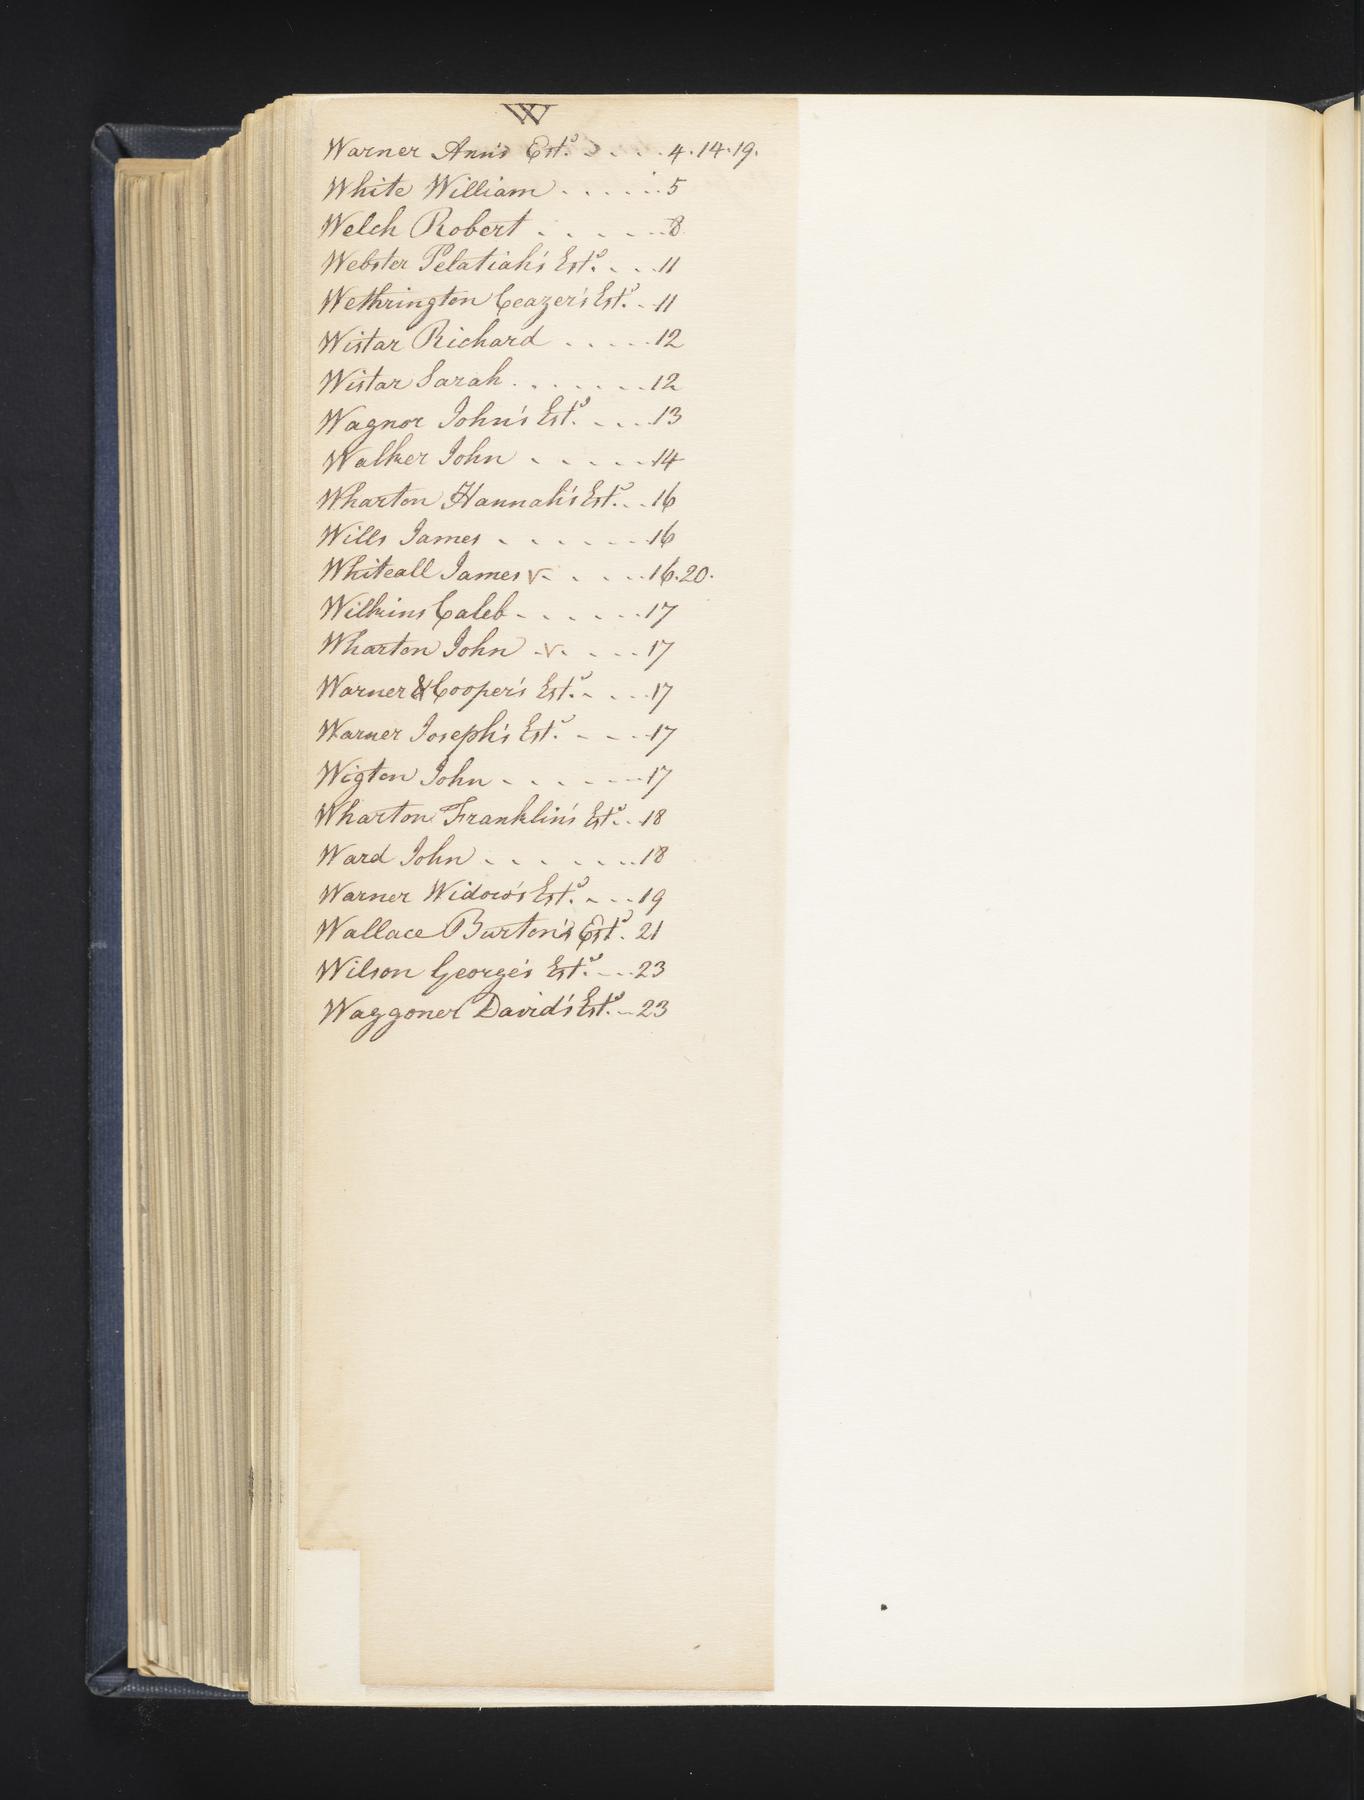 W
Warner Ann's Est.ͤ . . . . 4.14.19.
White William . . . . . . 5
Welch Robert . . . . . . 8
Webster Pelatiah's Est.ͤ . . . 11
Wethrington Ceazer's Est.ͤ . . 11
Wistar Richard . . . . . 12
Wistar Sarah . . . . . . . 12
Wagnor John's Est.ͤ . . . . 13
Walker John . . . . . 14
Wharton Hannah's Est.ͤ . . 16
Wills James . . . . . . . 16
Whiteall James v . . . . . 16.20.
Wilkins Caleb . . . . . . 17
Wharton John . v . . . . . 17
Warner & Cooper's Est.ͤ . . . . 17
Warner Joseph's Est.ͤ . . . . 17
Wigton John . . . . . . . 17
Wharton Franklin's Est.ͤ . . 18
Ward John . . . . . . . . 18
Warner Widow's Est.ͤ . . . . 19
Wallace Burton's Est.ͤ 21
Wilson George's Est.ͤ . . . 23
Waggoner David's Est.ͤ . . 23